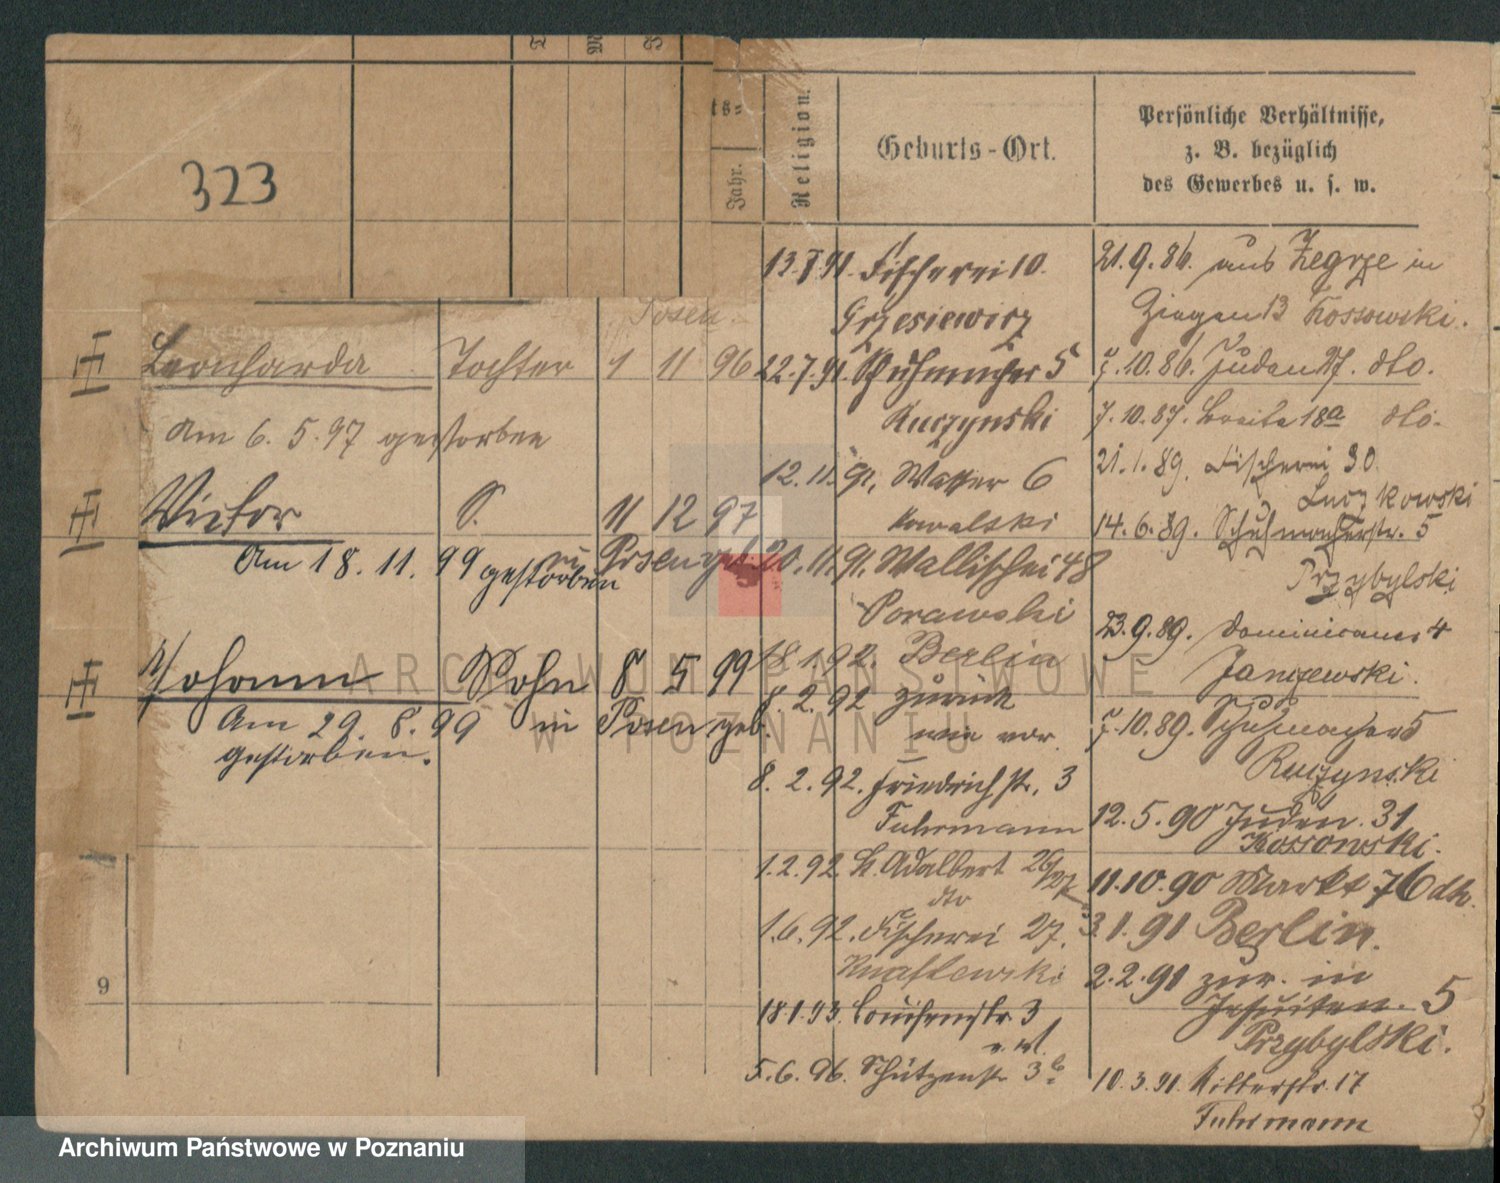 323
ts=
Jahr.
Religion.
Geburts-Ort.
Persönliche Verhältnisse,
z. B. bezüglich
des Gewerbes u. s. w.
Posen.
Leonharda Tochter 1 11 96
Am 6. 5. 97 gestorben
Victor S. 11 12 97
in Posen geb.
Am 18. 11. 99 gestorben
Johann Sohn 8 5 99
in Posen geb.
Am 29. 8. 99
gestorben.
9
Fischerei 10.
Grzesiewicz
22.7.91. Schuhmacher 5
Ruczynski
12.11.91. Wasser 6
Kowalski
20.11.91. Wallischei 48
Porawski
18.1.92. Berlin
8.2.92 zurück
wie vor.
8.2.92. Friedrichstr. 3
Fuhrmann
1.2.92. St. Adalbert 26/27
dto
1.6.92. Fischerei 27.
18.1.93. Louisenstr. 3
5.6.96. Schützenstr. 3b.
21.9.86. aus Zegrze in
Ziegen 13 Kossowski.
7.10.86. Juden 27. dto.
7.10.87. Breite 18a dto.
21.1.89. Fischerei 30.
14.6.89. Schuhmacherstr. 5
Przybylski
23.9.89. Dominicaner 4
Janczewski.
7.10.89. Schuhmacher 5
Ruczynski
12.5.90 Juden. 31
Kossowski.
11.10.90 Markt 76 dto.
3.1.91 Berlin.
2.2.91 zur. in
Jesuiten. 5
Przybylski.
10.3.91. Ritterstr. 17
Fuhrmann
ARCHIWUM PAŃSTWOWE
W POZNANIU
Archiwum Państwowe w Poznaniu